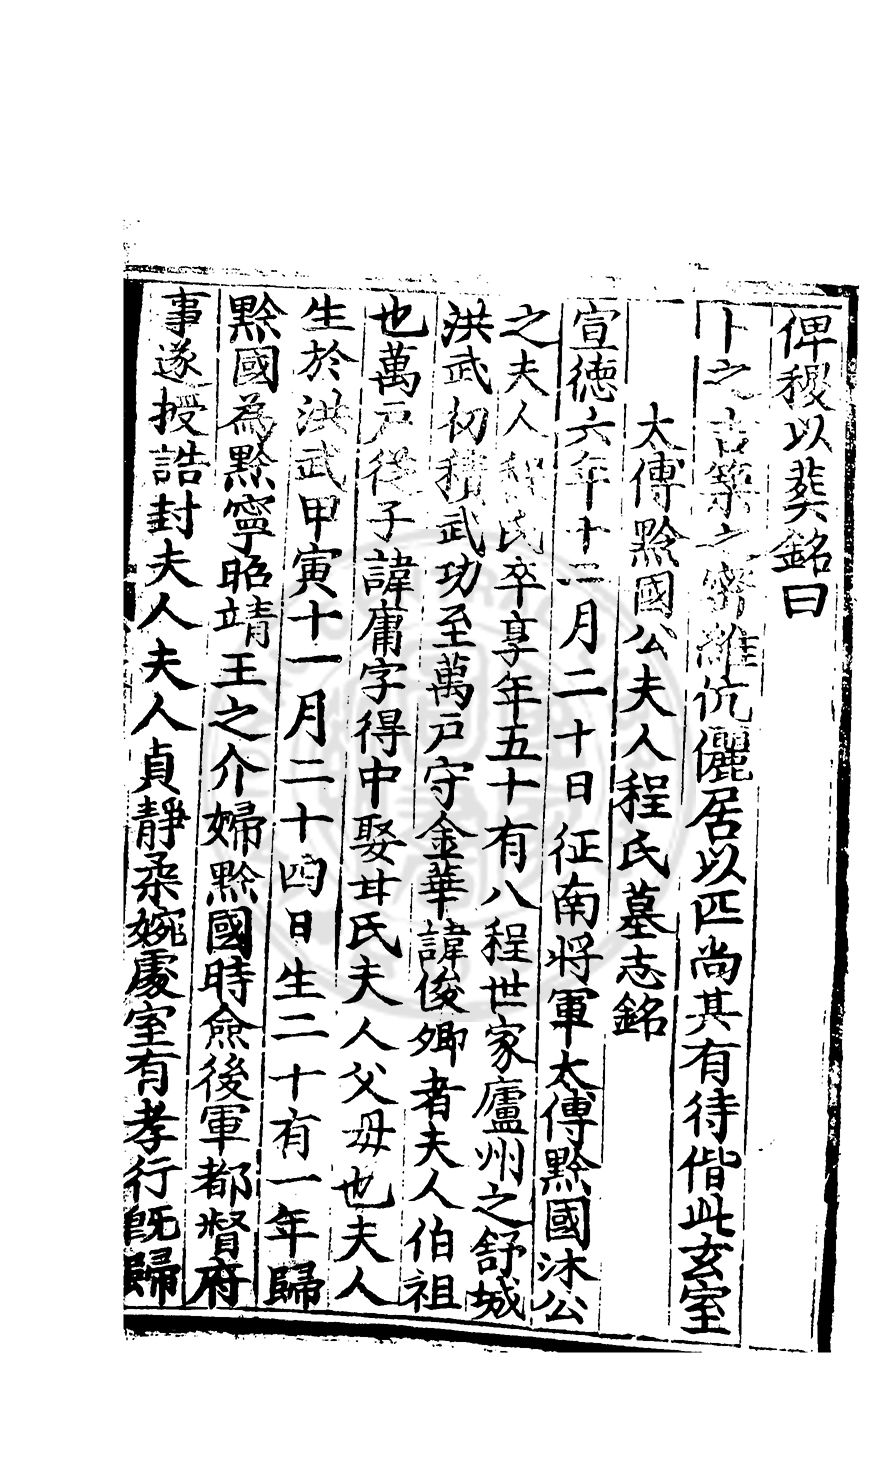 俾稷以葬銘曰
卜之吉築之密維伉儷居以匹尚其有待偕此玄室
太傅黔國公夫人程氏墓志銘
宣德六年十二月二十日征南將軍太傅黔國沐公
之夫人程氏卒享年五十有八程世家廬州之舒城
洪武初積武功至萬戶守金華諱俊卿者夫人伯祖
也萬戶從子諱庸字得中娶甘氏夫人父母也夫人
生於洪武甲寅十一月二十四日生二十有一年歸
黔國為黔寧昭靖王之介婦黔國時僉後軍都督府
事遂授誥封夫人夫人貞靜柔婉處室有孝行既歸